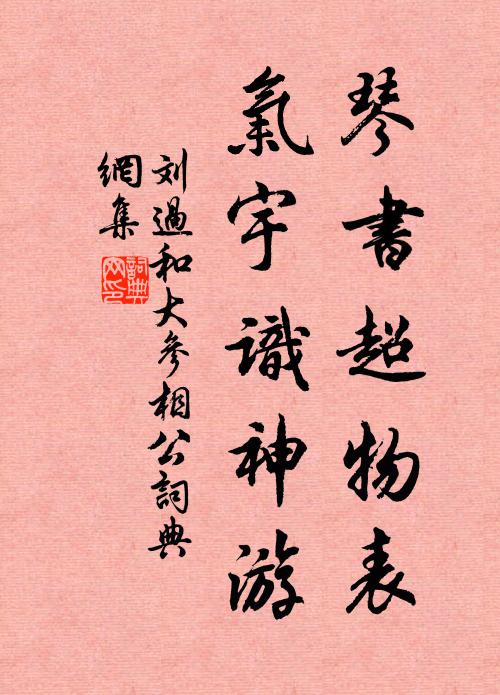 琴書超物表
氣宇識神游
刘過和大參相公詞典
網集
詞典
网印